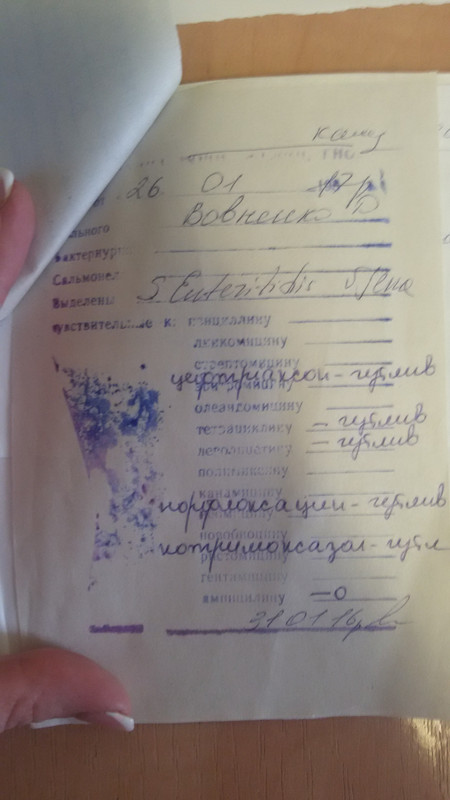 26 01 17р
льного Вовненко Д
бактериур
Сальмонел
Выделены S. Enteritidis
чувствительные к: пенциллину
линкомицину
стрептомицину
цефтриаксон - чутлив
олеандомицину
тетрациклину - чутлив
левомицетину - чутлив
полимиксину
канамицину
норфлоксацин - чутлив
новобиоцину
котримоксазол - чутл
гентамицину
ампицилину - 0
31 01 16р